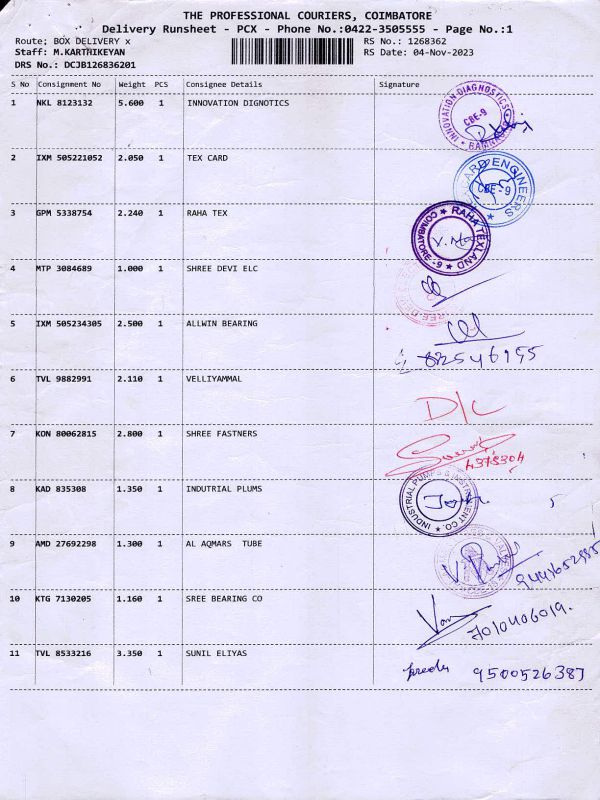 THE PROFESSIONAL COURIERS, COIMBATORE
Delivery Runsheet - PCX - Phone No.:0422-3505555 - Page No.:1
Route; BOX DELIVERY x RS No.: 1268362
Staff: M.KARTHIKEYAN RS Date: 04-Nov-2023
DRS No.: DCJB126836201
S No Consignment No Weight PCS Consignee Details Signature
1 NKL 8123132 5.600 1 INNOVATION DIGNOTICS
INNOVATION DIAGNOSTICS
CBE-9
2 IXM 505221052 2.050 1 TEX CARD
CARD ENGINEERS
CBE-9
3 GPM 5338754 2.240 1 RAHA TEX
RAHA TEXLAND
COIMBATORE-9
4 MTP 3084689 1.000 1 SHREE DEVI ELC
5 IXM 505234305 2.500 1 ALLWIN BEARING
6 TVL 9882991 2.110 1 VELLIYAMMAL
D/C
7 KON 80062815 2.800 1 SHREE FASTNERS
8 KAD 835308 1.350 1 INDUTRIAL PLUMS
INDUSTRIAL PUMPS & INSTRUMENT CO.
9 AMD 27692298 1.300 1 AL AQMARS TUBE
10 KTG 7130205 1.160 1 SREE BEARING CO
7010406019.
11 TVL 8533216 3.350 1 SUNIL ELIYAS
9500526387